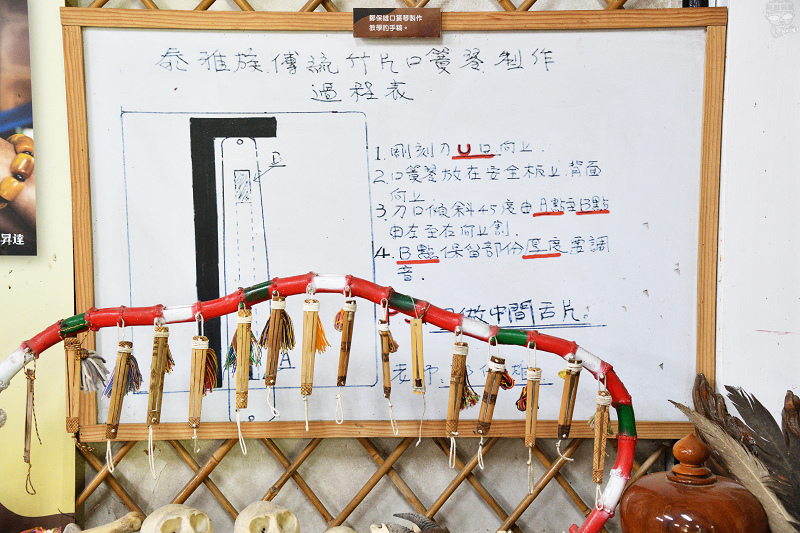 鄭保雄口簧琴製作
教學的手稿。
泰雅族傳流竹片口簧琴製作
過程表
1. 剛刻刀U口向上.
2. 口簧琴放在安全板上.背面
向上.
3. 刀口傾斜45度由A點至B點
由左至右向上割.
4. B點保留部份厚度需調
音.
B
A
做中間舌片.
老師:
昇達